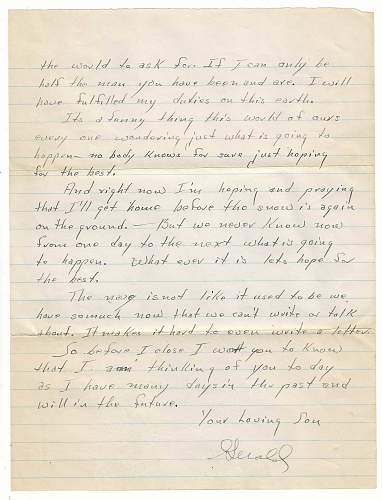 the world to ask for. If I can only be
half the man you have been and are. I will
have fulfilled my duties on this earth.
Its a funny thing this world of ours
every one wondering just what is going to
happen - no body knows for sure just hoping
for the best.
And right now I'm hoping and praying
that I'll get home before the snow is again
on the ground. - But we never know now
from one day to the next what is going
to happen. What ever it is lets hope for
the best.
The navy is not like it used to be we
have so much now that we can't write or talk
about. It makes it hard to even write a letter.
So before I close I want you to know
that I am thinking of you to day
as I have many days in the past and
will in the future.
Your Loving Son
Gerald